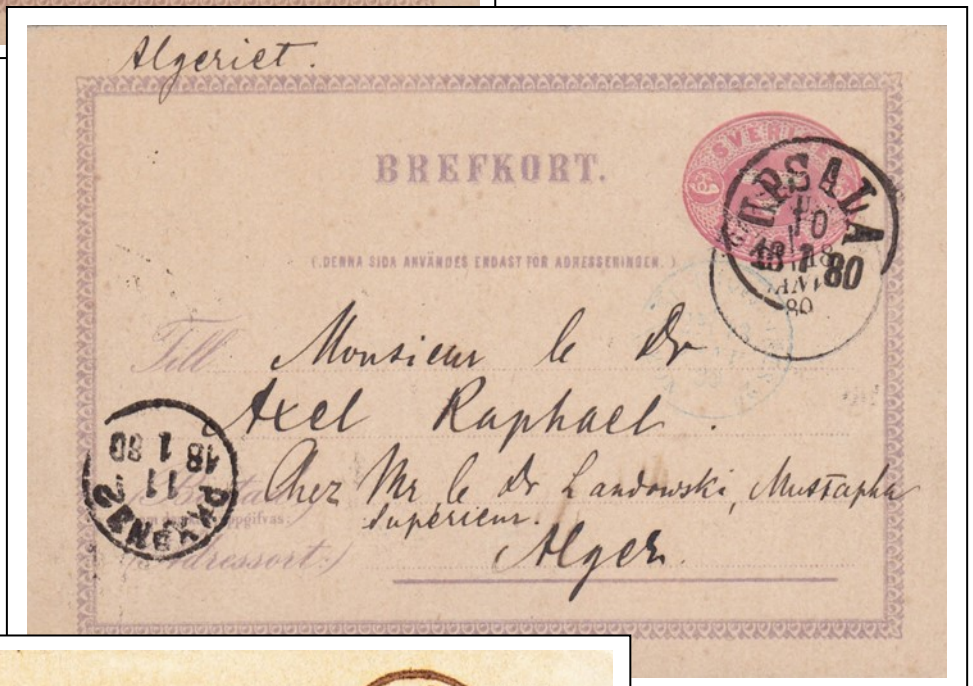 Algeriet.
BREFKORT.
SVERIGE
UPSALA
18 1 80
(DENNA SIDA ANVÄNDES ENDAST FÖR ADRESSERINGEN.)
JANV
80
Till Monsieur le Dr
Axel Raphael.
Chez Mr le Dr Landowski, Mustapha
Supérieur.
Alger.
(Adressort:)
PKXBN
11
18 1 80